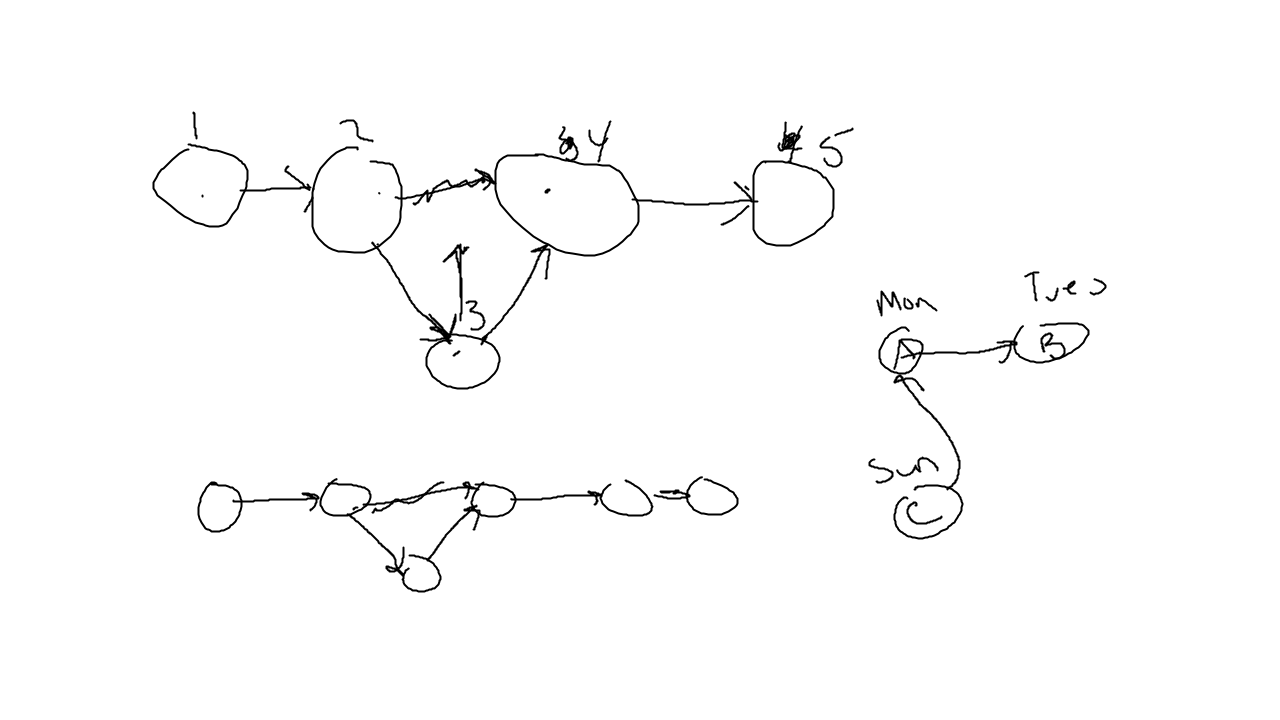 1 2 4 5
3
Mon Tues
A B
Sun
C